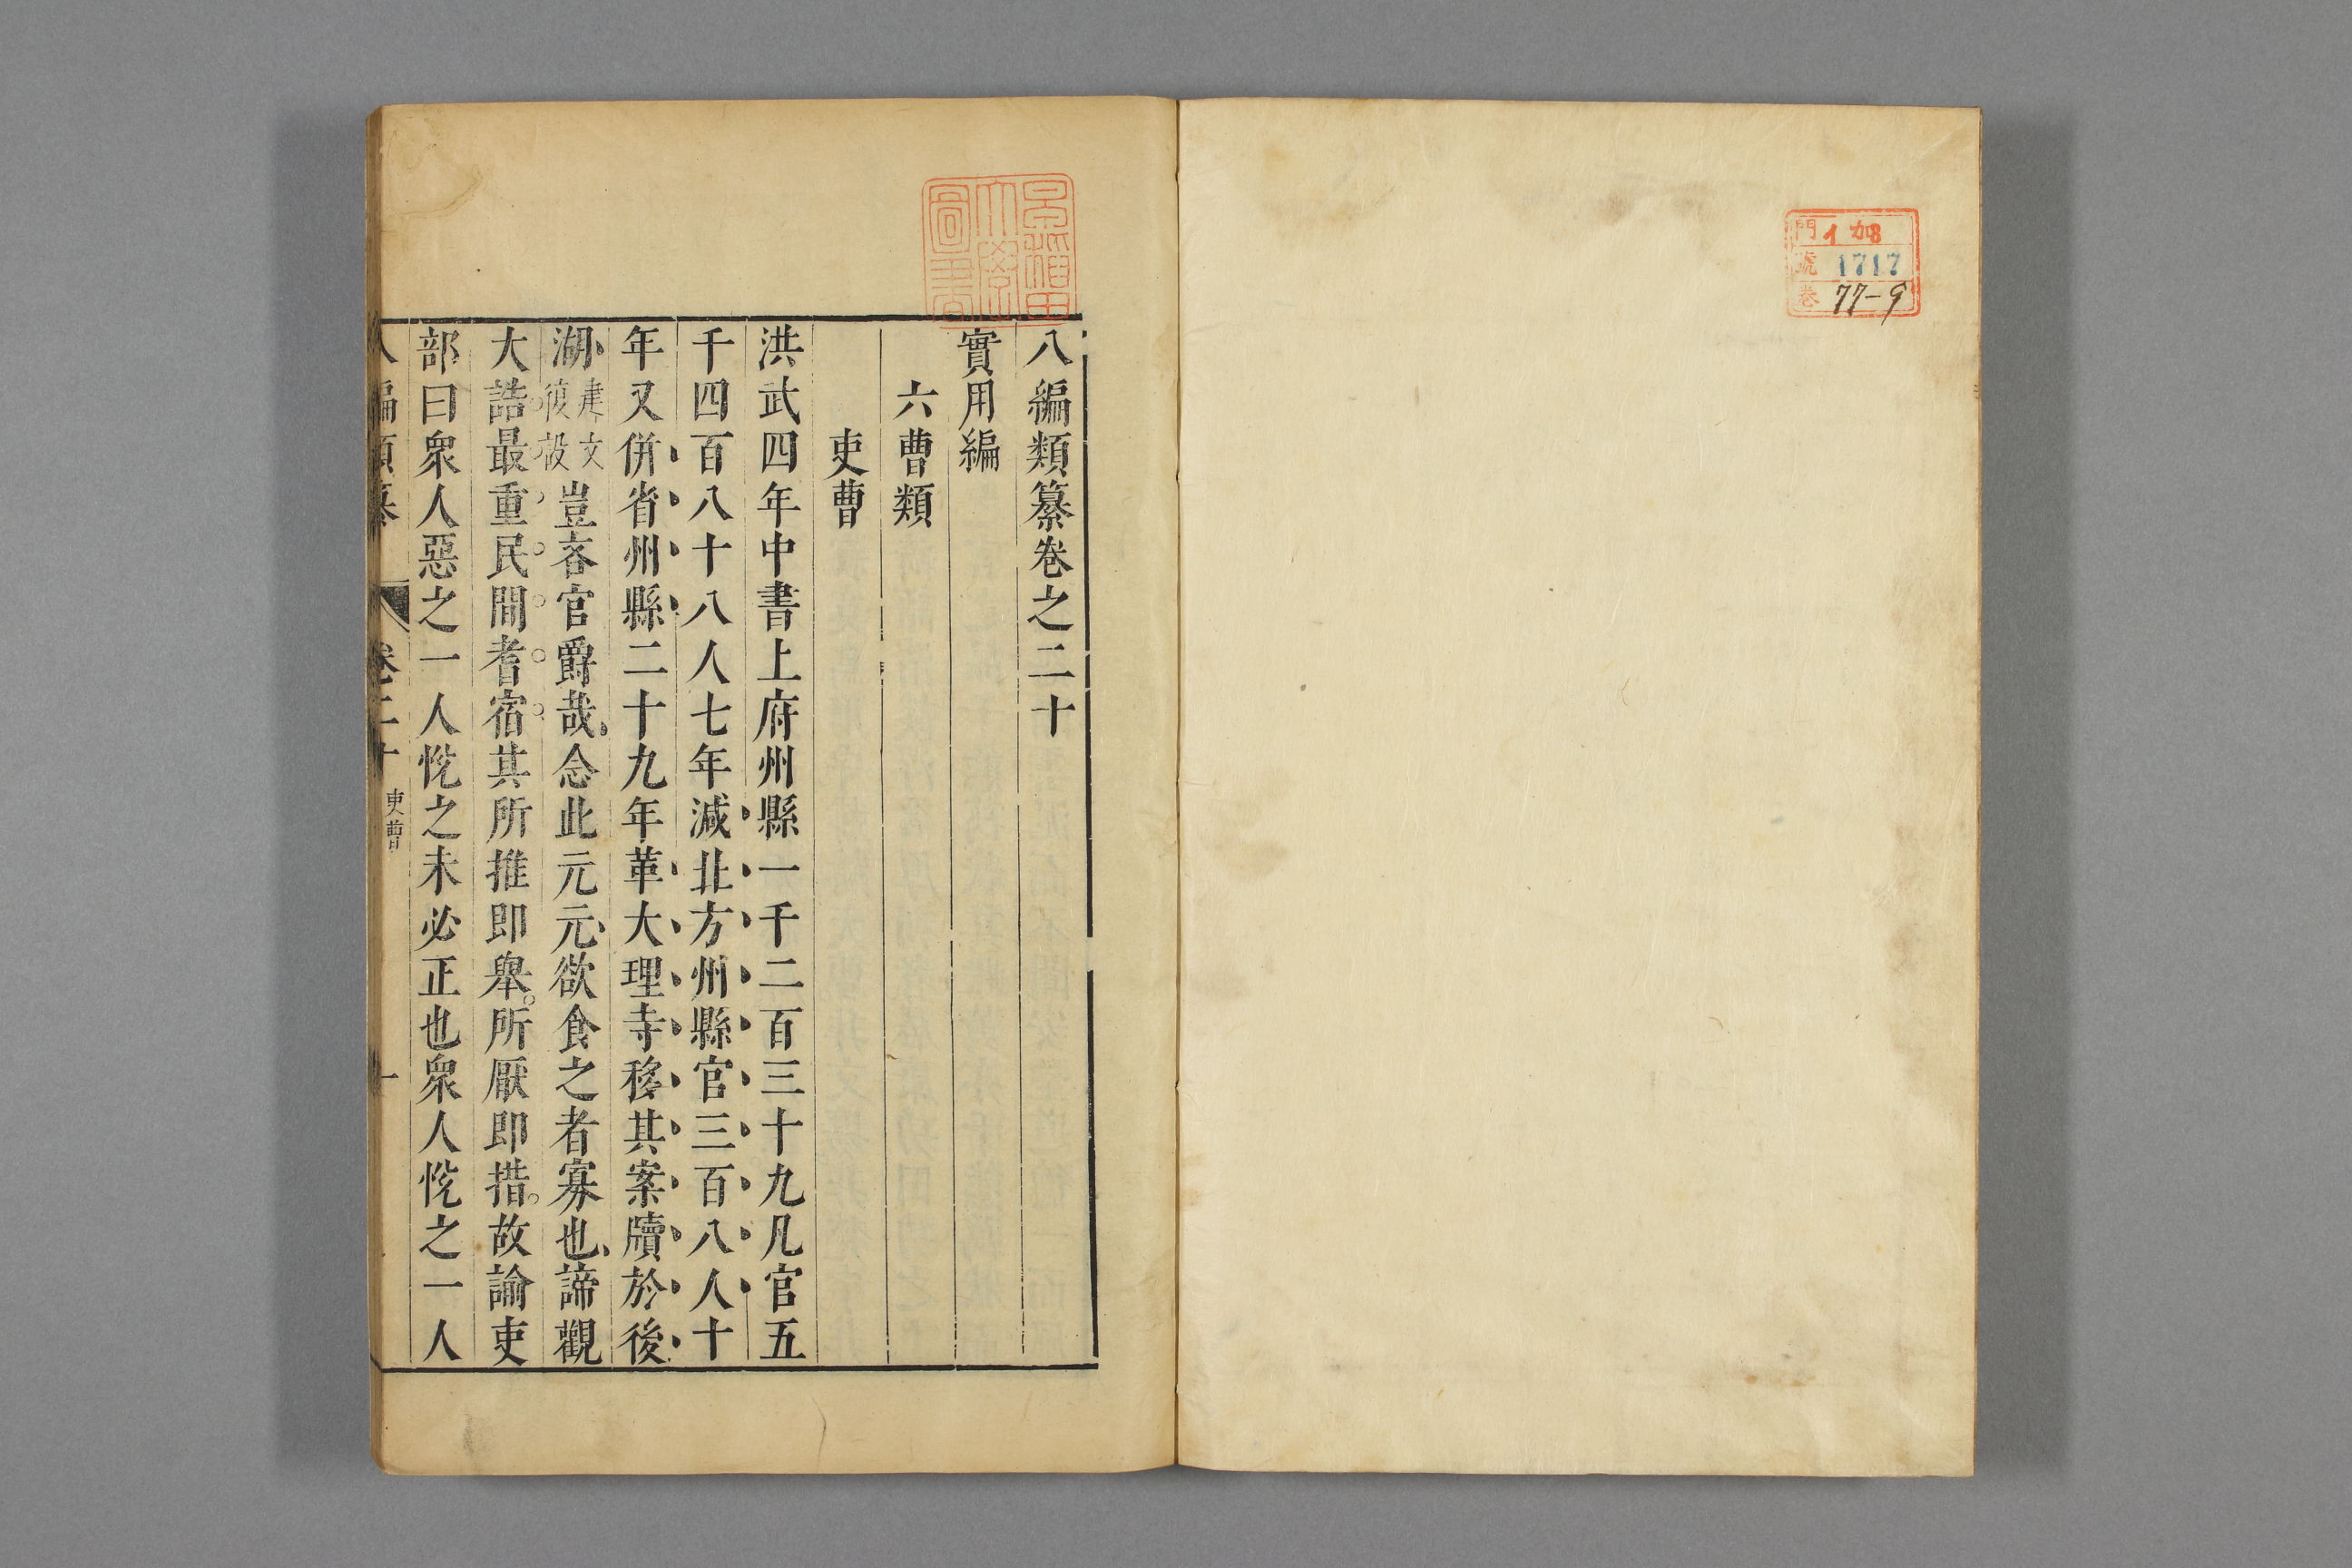 門 イ 加
號 1717
卷 77-9
早稲田
大學
圖書
八編類纂卷之二十
實用編
六曹類
吏曹
洪武四年中書上府州縣一千二百三十九凡官五
千四百八十八人七年減北方州縣官三百八人十
年又併省州縣二十九年革大理寺移其案牘於後
湖建文復設豈吝官爵哉念此元元欲食之者寡也諦觀
大誥最重民間耆宿其所推即舉所厭即措故諭吏
部曰眾人惡之一人悅之未必正也眾人悅之一人
八編類纂 卷二十 吏曹 一